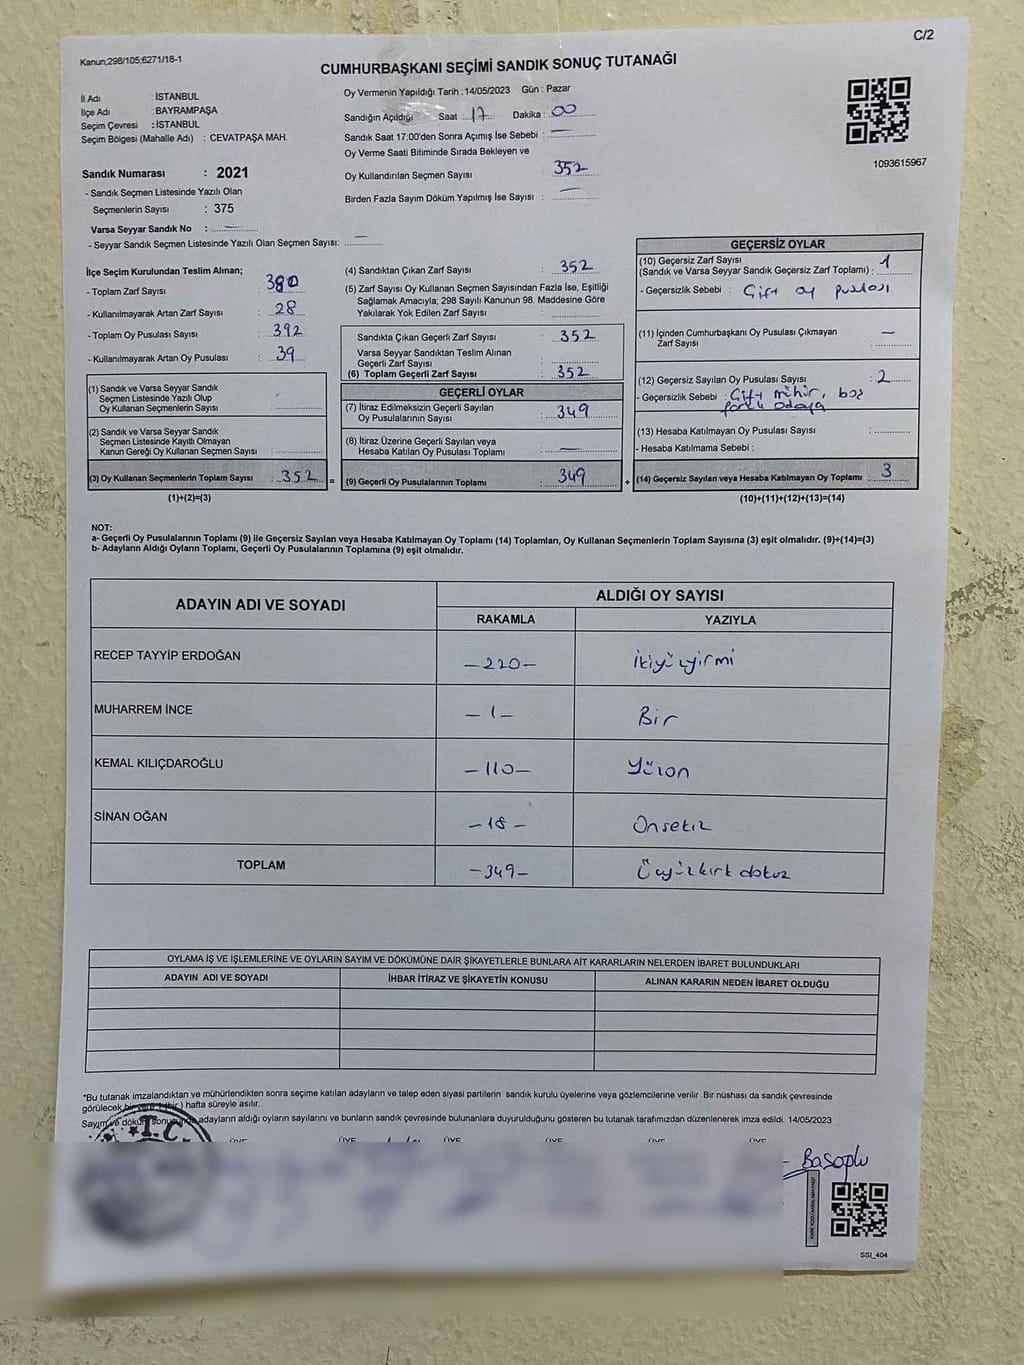 C/2
Kanun;298/105;6271/18-1
CUMHURBAŞKANI SEÇİMİ SANDIK SONUÇ TUTANAĞI
İl Adı : İSTANBUL
İlçe Adı : BAYRAMPAŞA
Seçim Çevresi : İSTANBUL
Seçim Bölgesi (Mahalle Adı) : CEVATPAŞA MAH.
Sandık Numarası : 2021
- Sandık Seçmen Listesinde Yazılı Olan
Seçmenlerin Sayısı : 375
Varsa Seyyar Sandık No : —
- Seyyar Sandık Seçmen Listesinde Yazılı Olan Seçmen Sayısı: —
Oy Vermenin Yapıldığı Tarih : 14/05/2023 Gün : Pazar
Sandığın Açıldığı Saat : 17 Dakika : 00
Sandık Saat 17:00'den Sonra Açımış İse Sebebi : —
Oy Verme Saati Bitiminde Sırada Bekleyen ve
Oy Kullandırılan Seçmen Sayısı 352
Birden Fazla Sayım Döküm Yapılmış İse Sayısı : —
1093615967
İlçe Seçim Kurulundan Teslim Alınan;
- Toplam Zarf Sayısı : 380
- Kullanılmayarak Artan Zarf Sayısı : 28
- Toplam Oy Pusulası Sayısı : 392
- Kullanılmayarak Artan Oy Pusulası : 39
(1) Sandık ve Varsa Seyyar Sandık
Seçmen Listesinde Yazılı Olup
Oy Kullanan Seçmenlerin Sayısı :
(2) Sandık ve Varsa Seyyar Sandık
Seçmen Listesinde Kayıtlı Olmayan
Kanun Gereği Oy Kullanan Seçmen Sayısı :
(3) Oy Kullanan Seçmenlerin Toplam Sayısı : 352 =
(1)+(2)=(3)
(4) Sandıktan Çıkan Zarf Sayısı : 352
(5) Zarf Sayısı Oy Kullanan Seçmen Sayısından Fazla İse, Eşitliği
Sağlamak Amacıyla; 298 Sayılı Kanunun 98. Maddesine Göre
Yakılarak Yok Edilen Zarf Sayısı :
Sandıkta Çıkan Geçerli Zarf Sayısı : 352
Varsa Seyyar Sandıktan Teslim Alınan
Geçerli Zarf Sayısı :
(6) Toplam Geçerli Zarf Sayısı : 352
GEÇERLİ OYLAR
(7) İtiraz Edilmeksizin Geçerli Sayılan
Oy Pusulalarının Sayısı : 349
(8) İtiraz Üzerine Geçerli Sayılan veya
Hesaba Katılan Oy Pusulası Toplamı : —
(9) Geçerli Oy Pusulalarının Toplamı : 349 +
GEÇERSİZ OYLAR
(10) Geçersiz Zarf Sayısı
(Sandık ve Varsa Seyyar Sandık Geçersiz Zarf Toplamı) : 1
- Geçersizlik Sebebi : Çift oy pusulası
(11) İçinden Cumhurbaşkanı Oy Pusulası Çıkmayan
Zarf Sayısı : —
(12) Geçersiz Sayılan Oy Pusulası Sayısı : 2
- Geçersizlik Sebebi : Çift mühür, boş
(13) Hesaba Katılmayan Oy Pusulası Sayısı :
- Hesaba Katılmama Sebebi :
(14) Geçersiz Sayılan veya Hesaba Katılmayan Oy Toplamı : 3
(10)+(11)+(12)+(13)=(14)
NOT:
a- Geçerli Oy Pusulalarının Toplamı (9) ile Geçersiz Sayılan veya Hesaba Katılmayan Oy Toplamı (14) Toplamları, Oy Kullanan Seçmenlerin Toplam Sayısına (3) eşit olmalıdır. (9)+(14)=(3)
b- Adayların Aldığı Oyların Toplamı, Geçerli Oy Pusulalarının Toplamına (9) eşit olmalıdır.
ADAYIN ADI VE SOYADI
ALDIĞI OY SAYISI
RAKAMLA YAZIYLA
RECEP TAYYİP ERDOĞAN -220- İkiyüzyirmi
MUHARREM İNCE -1- Bir
KEMAL KILIÇDAROĞLU -110- Yüzon
SİNAN OĞAN -18- Onsekiz
TOPLAM -349- Üçyüzkırk dokuz
OYLAMA İŞ VE İŞLEMLERİNE VE OYLARIN SAYIM VE DÖKÜMÜNE DAİR ŞİKAYETLERLE BUNLARA AİT KARARLARIN NELERDEN İBARET BULUNDUKLARI
ADAYIN ADI VE SOYADI İHBAR İTİRAZ VE ŞİKAYETİN KONUSU ALINAN KARARIN NEDEN İBARET OLDUĞU
*Bu tutanak imzalandıktan ve mühürlendikten sonra seçime katılan adayların ve talep eden siyasi partilerin sandık kurulu üyelerine veya gözlemcilerine verilir. Bir nüshası da sandık çevresinde
görülecek bir yere 1 (bir) hafta süreyle asılır.
Sayım ve döküm sonucunda adayların aldığı oyların sayılarını ve bunların sandık çevresinde bulunanlara duyurulduğunu gösteren bu tutanak tarafımızdan düzenlenerek imza edildi. 14/05/2023
T.C.
ÜYE ÜYE ÜYE ÜYE ÜYE ÜYE
SSI_404